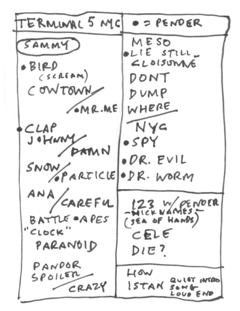 TERMINAL 5 NYC
SAMMY
• BIRD
(SCREAM)
COWTOWN
• MR. ME
• CLAP
JOHNNY
DAMN
SNOW
• PARTICLE
ANA
CAREFUL
BATTLE • APES
"CLOCK"
PARANOID
PANDOR
SPOILER
CRAZY
• = PENDER
MESO
• LIE STILL
CLOISONNE
DONT
DUMP
WHERE
NYG
• SPY
• DR. EVIL
• DR. WORM
123 W/ PENDER
NICKNAMES
(SEA OF HANDS)
CELE
DIE?
HOW
ISTAN QUIET INTRO
SONG
LOUD END